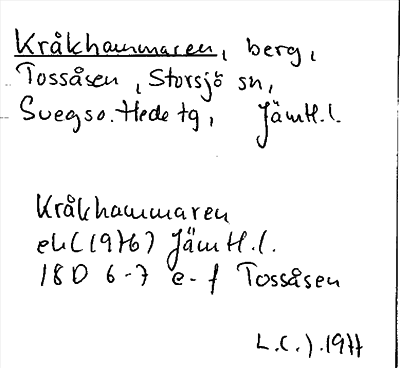 Kråkhammaren, berg,
Tossåsen, Storsjö sn,
Svegs o. Hede tg, Jämtl. l.
Kråkhammaren
ekl (1976) Jämtl. l.
18D 6-7 e-f Tossåsen
L.C.J. 1977